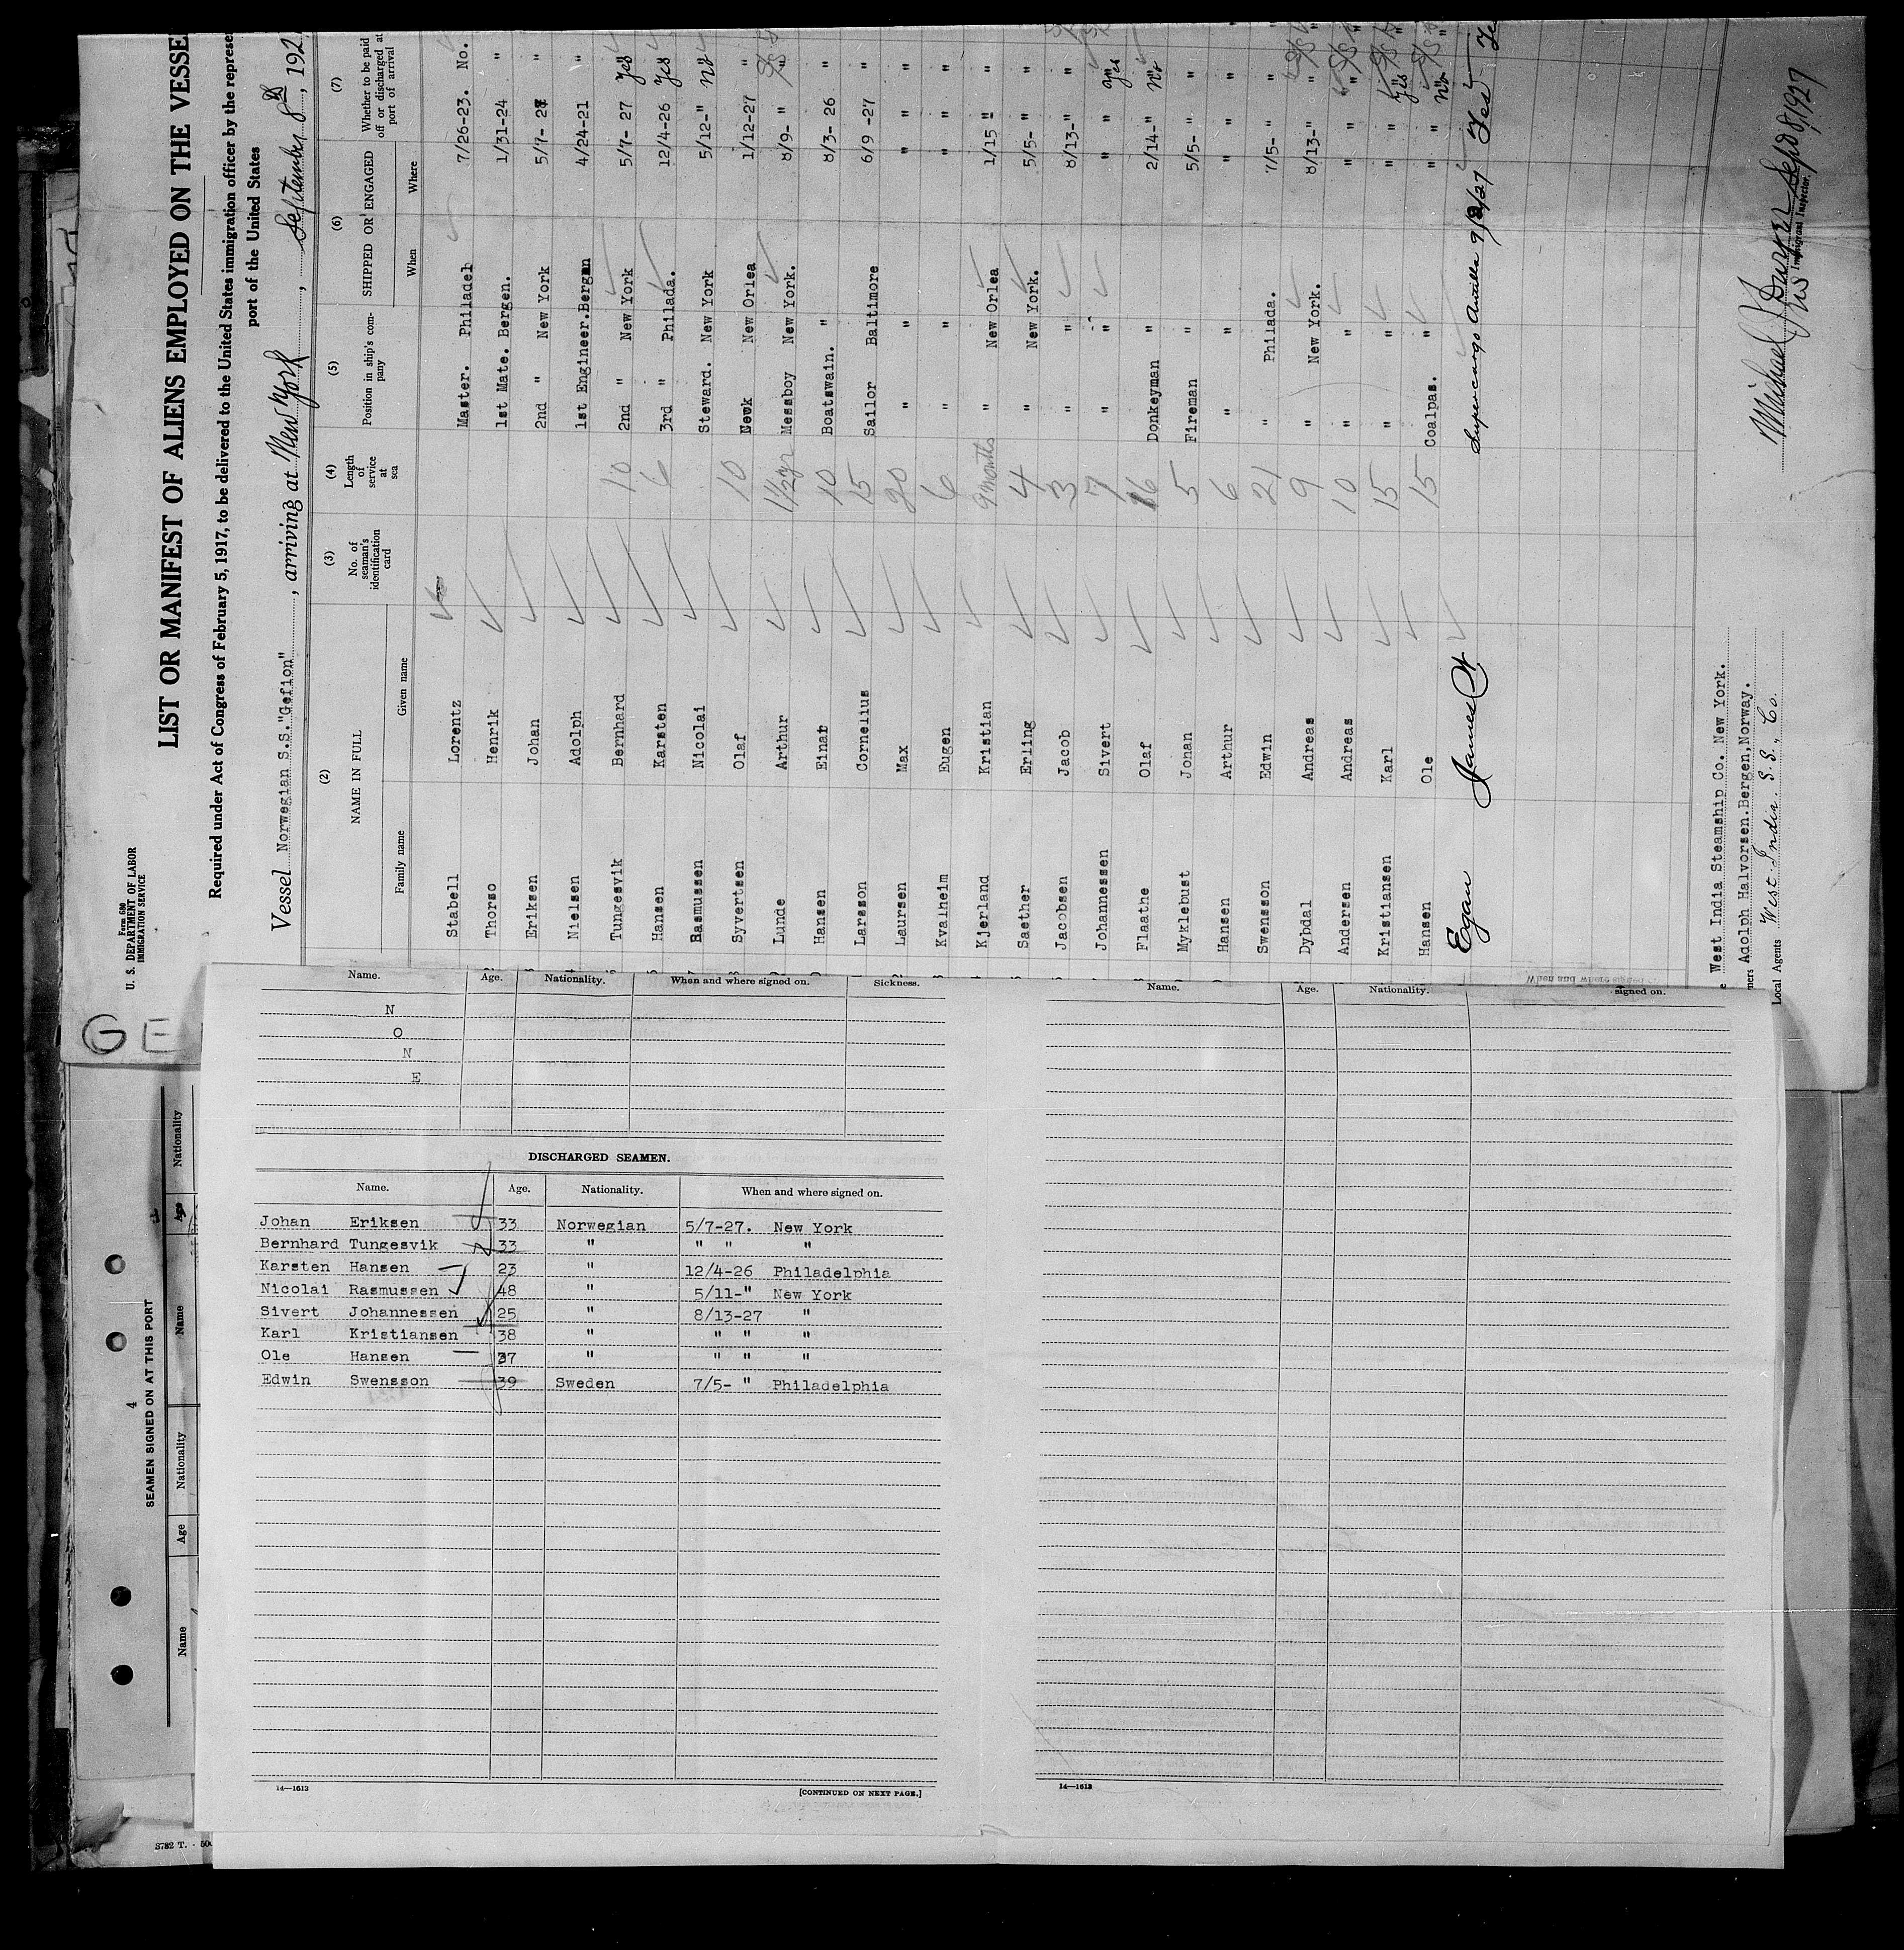 Form 680
U. S. DEPARTMENT OF LABOR
IMMIGRATION SERVICE
LIST OR MANIFEST OF ALIENS EMPLOYED ON THE VESSE
Required under Act of Congress of February 5, 1917, to be delivered to the United States immigration officer by the represe
port of the United States
Vessel Norwegian S.S."Gefion", arriving at New York, September 8th, 192
(2) (3) (4) (5) (6) (7)
NAME IN FULL No. of seaman's identification card Length of service at sea Position in ship's company SHIPPED OR ENGAGED Whether to be paid off or discharged at port of arrival
Family name Given name When Where
Stabell Lorentz Master. Philadel 7/26-23. No.
Thorso Henrik 1st Mate. Bergen. 1/31-24 "
Eriksen Johan 2nd " New York 5/7- 27 "
Nielsen Adolph 1st Engineer. Bergen 4/24-21 "
Tungesvik Bernhard 10 2nd " New York 5/7- 27 Yes
Hansen Karsten 6 3rd " Philada. 12/4-26 Yes
Rasmussen Nicolai Steward. New York 5/12-" No
Syvertsen Olaf 10 New Orlea 1/12-27 "
Lunde Arthur 1 1/2 yr Messboy New York. 8/9- " "
Hansen Einar 10 Boatswain. " 8/3- 26 "
Larsson Cornelius 15 Sailor Baltimore 6/9 -27 "
Laursen Max 20 " " " "
Kvalheim Eugen 6 " " " "
Kjerland Kristian 9 months " New Orlea 1/15 " "
Saether Erling 4 " New York. 5/5- " "
Jacobsen Jacob 3 " " 8/13-" "
Johannessen Sivert 7 " " " Yes
Flaathe Olaf 16 Donkeyman " 2/14-" No
Myklebust Johan 5 Fireman " 5/5- " "
Hansen Arthur 6 " " " "
Swensson Edwin 21 " Philada. 7/5- " "
Dybdal Andreas 9 " New York. 8/13-" "
Andersen Andreas 10 " " " "
Kristiansen Karl 15 " " " Yes
Hansen Ole 15 Coalpas. " " No
Egan James W Supercargo Antilla 9/2/27 Yes
West India Steamship Co. New York.
ners Adolph Halvorsen. Bergen, Norway.
Local Agents West India S.S., Co.
Michael J
Sept 8/1927
Immigrant Inspector.
GE
Name. Age. Nationality. When and where signed on. Sickness.
N
O
N
E
DISCHARGED SEAMEN.
Name. Age. Nationality. When and where signed on.
Johan Eriksen 33 Norwegian 5/7-27. New York
Bernhard Tungesvik 33 " " " "
Karsten Hansen 23 " 12/4-26 Philadelphia
Nicolai Rasmussen 48 " 5/11-" New York
Sivert Johannessen 25 " 8/13-27 "
Karl Kristiansen 38 " " " "
Ole Hansen 37 " " " "
Edwin Swensson 39 Sweden 7/5- " Philadelphia
14—1613
[CONTINUED ON NEXT PAGE.]
Name. Age. Nationality. signed on.
14—1613
4
SEAMEN SIGNED ON AT THIS PORT
Name Age Nationality Name Age Nationality
S782 T.